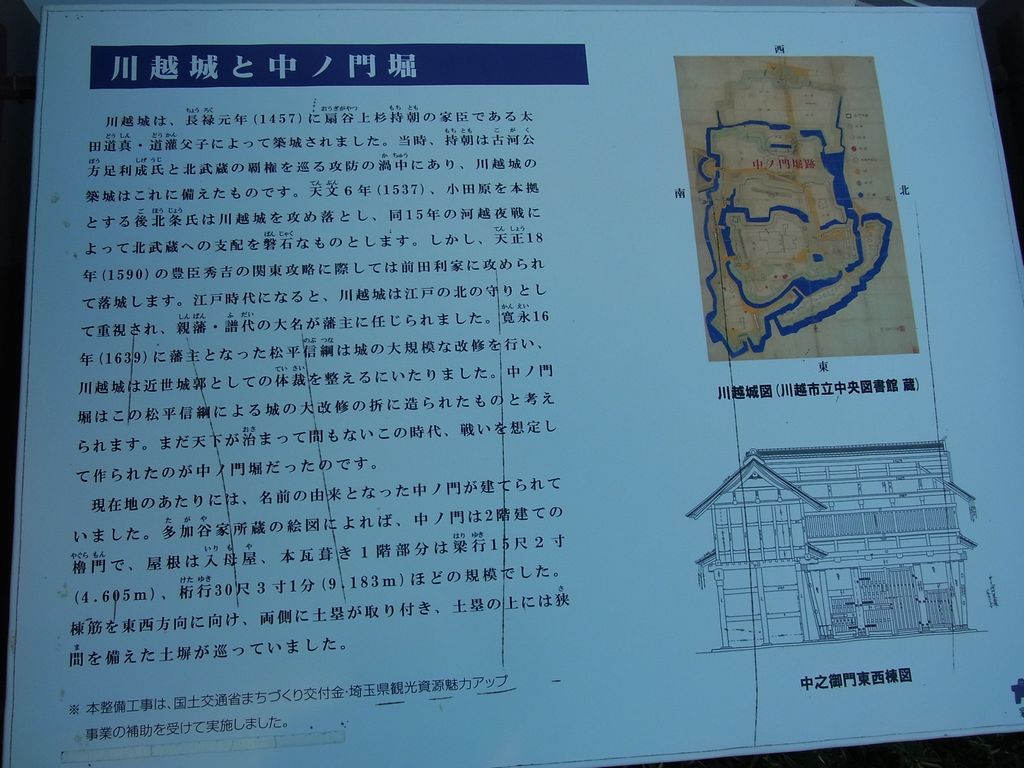 川越城と中ノ門堀
川越城は、長禄元年(1457)に扇谷上杉持朝の家臣である太
田道真・道灌父子によって築城されました。当時、持朝は古河公
方足利成氏と北武蔵の覇権を巡る攻防の渦中にあり、川越城の
築城はこれに備えたものです。天文6年(1537)、小田原を本拠
とする後北条氏は川越城を攻め落とし、同15年の河越夜戦に
よって北武蔵への支配を磐石なものとします。しかし、天正18
年(1590)の豊臣秀吉の関東攻略に際しては前田利家に攻められ
て落城します。江戸時代になると、川越城は江戸の北の守りとし
て重視され、親藩・譜代の大名が藩主に任じられました。寛永16
年(1639)に藩主となった松平信綱は城の大規模な改修を行い、
川越城は近世城郭としての体裁を整えるにいたりました。中ノ門
堀はこの松平信綱による城の大改修の折に造られたものと考え
られます。まだ天下が治まって間もないこの時代、戦いを想定し
て作られたのが中ノ門堀だったのです。
現在地のあたりには、名前の由来となった中ノ門が建てられて
いました。多加谷家所蔵の絵図によれば、中ノ門は2階建ての
櫓門で、屋根は入母屋、本瓦葺き1階部分は梁行15尺2寸
(4.605m)、桁行30尺3寸1分(9.183m)ほどの規模でした。
棟筋を東西方向に向け、両側に土塁が取り付き、土塁の上には狭
間を備えた土塀が巡っていました。
※ 本整備工事は、国土交通省まちづくり交付金・埼玉県観光資源魅力アップ
事業の補助を受けて実施しました。
西
中ノ門堀跡
南
北
東
川越城図(川越市立中央図書館 蔵)
中之御門東西棟図